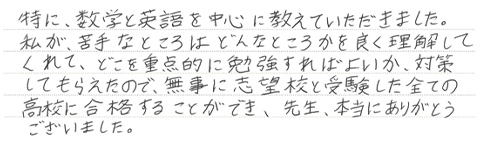 特に、数学と英語を中心に教えていただきました。
私が、苦手なところはどんなところかを良く理解して
くれて、どこを重点的に勉強すればよいか、対策
してもらえたので、無事に志望校と受験した全ての
高校に合格することができ、先生、本当にありがとう
ございました。